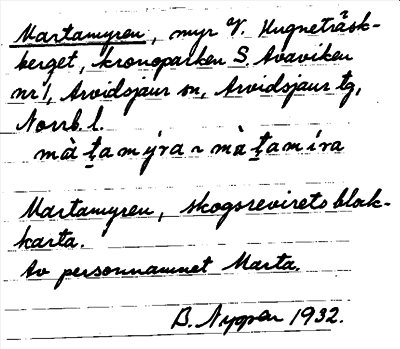 Martamyren, myr V. Hugneträsk-
berget, kronoparken S. Avaviken
nr 1, Arvidsjaur sn, Arvidsjaur tg,
Norrb. l.
mà ṯa mýra ~ mà ṯa míra
Martamyren, skogsrevirets blak-
karta.
Av personnamnet Marta.
B. Nygren 1932.